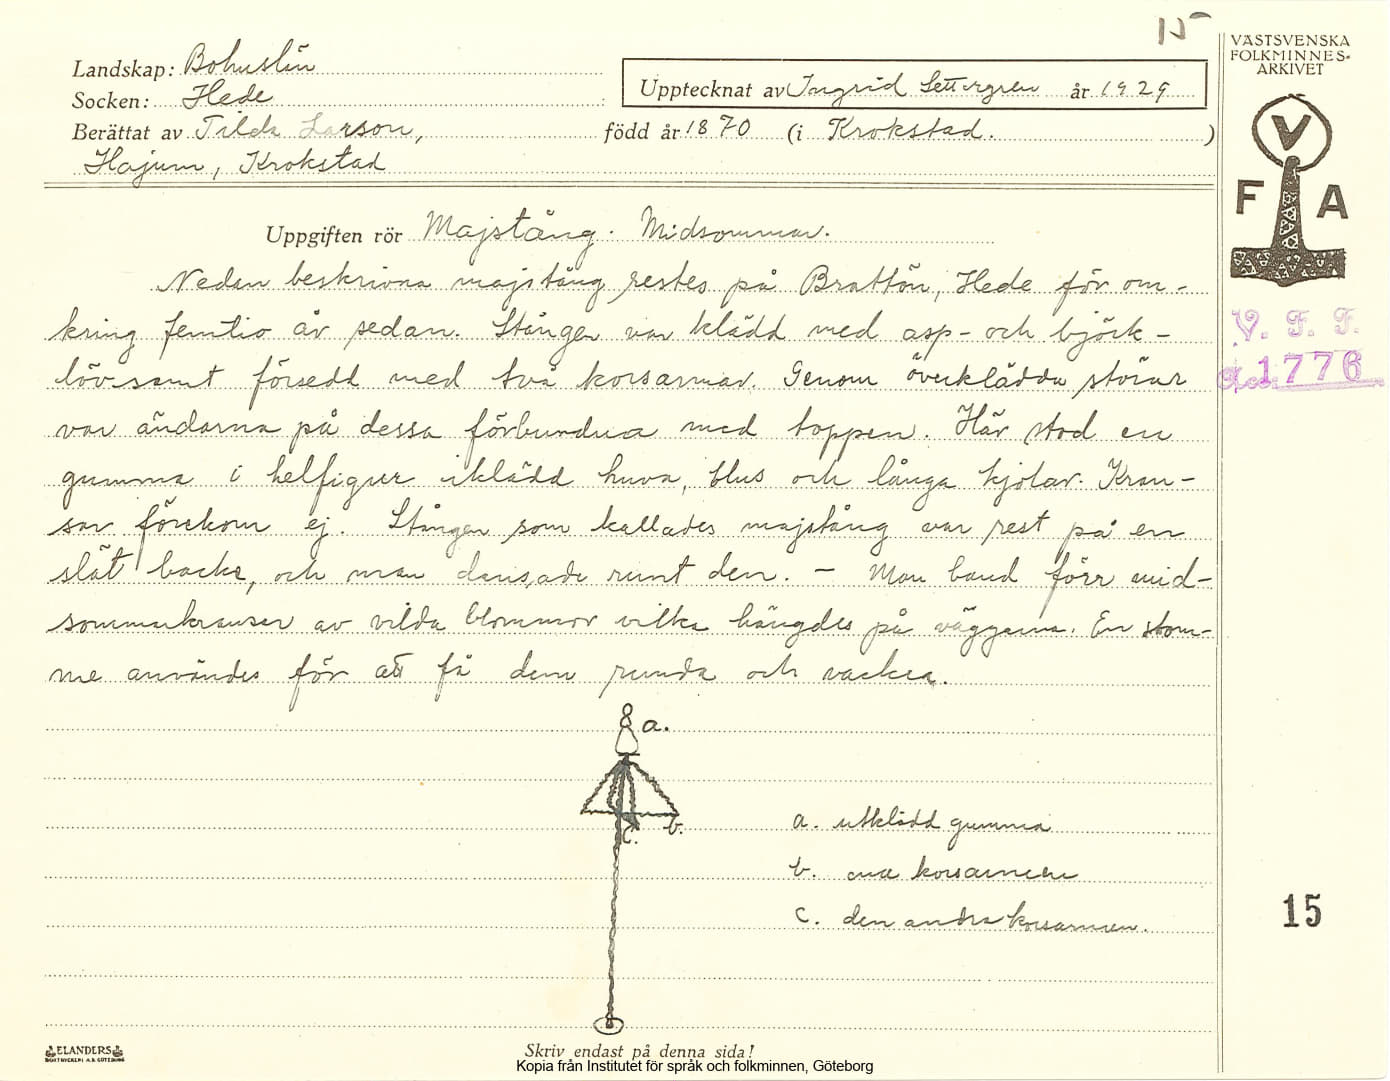 15
VÄSTSVENSKA
FOLKMINNES-
ARKIVET
Landskap: Bohuslän
Socken: Hede
Upptecknat av Ingrid Settergren år 1929
Berättat av Tilda Larson, född år 1870 (i Krokstad.)
Hajum, Krokstad
V
F A
Uppgiften rör Majstång. Midsommar.
Nedan beskrivna majstång restes på Brattön, Hede för om-
kring femtio år sedan. Stången var klädd med asp- och björk-
löv samt försedd med två korsarmar. Genom överklädda störar
var ändarna på dessa förbundna med toppen. Här stod en
gumma i helfigur iklädd huva, blus och långa kjolar. Kran-
sar förekom ej. Stången som kallades majstång var rest på en
slät backe, och man dansade runt den. - Man band förr mid-
sommarkransar av vilda blommor vilka hängdes på väggarna. En stom-
me användes för att få dem runda och vackra.
V. F. F.
Acc. 1776
a.
b.
c.
a. utklädd gumma
b. ena korsarmen
c. den andra korsarmen.
15
ELANDERS
BOKTRYCKERI A.B. GÖTEBORG
Skriv endast på denna sida!
Kopia från Institutet för språk och folkminnen, Göteborg